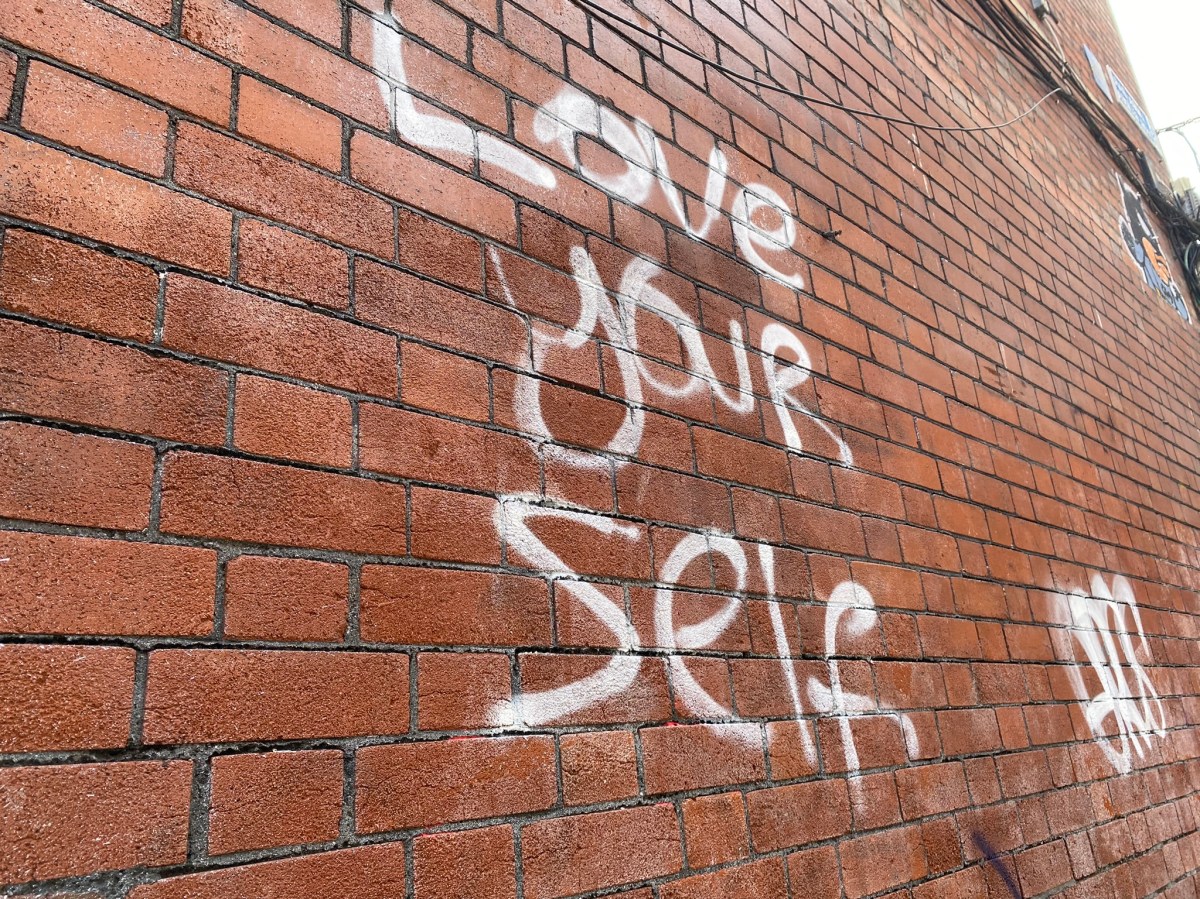 Love
YOUR
Self